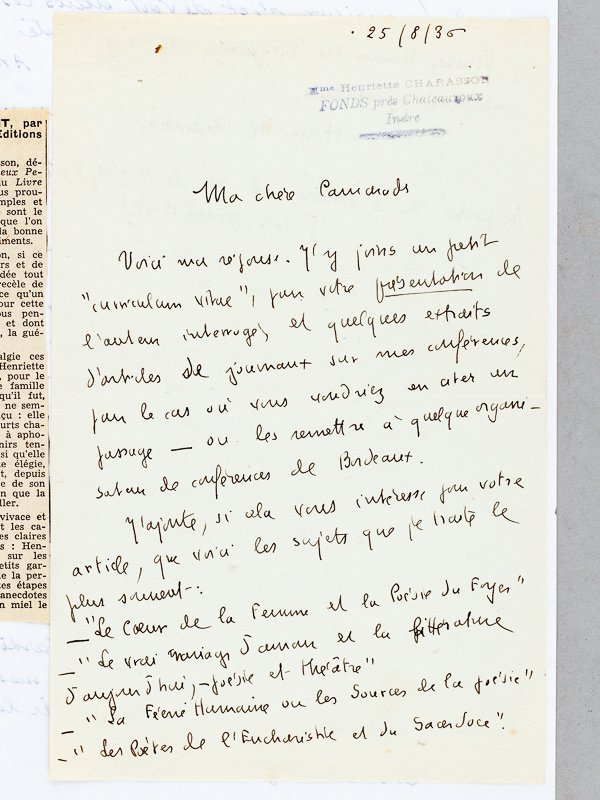 25/8/35
Mme Henriette CHARASSON
FONDS près Chateauroux
Indre
Ma chère Camarade
Voici ma réponse. J'y joins un petit
"curriculum vitae", pour votre présentation de
l'auteur interrogé, et quelques extraits
d'articles de journaux sur mes conférences,
pour le cas où vous voudriez en citer un
passage — ou les remettre à quelque organi-
sateur de conférences de Bordeaux.
J'ajoute, si cela vous intéresse pour votre
article, que voici les sujets que je traite le
plus souvent:
— "Le Coeur de la Femme et la Poésie du Foyer"
— "Le vrai mariage d'amour et la littérature
d'aujourd'hui, – poésie et théâtre"
— "La Féerie Humaine ou les Sources de la poésie"
— "Les Poètes de l'Eucharistie et du Sacerdoce".
T, par
Editions
son, dé-
eux Pe-
u Livre
us prou-
mples et
sont le
que l'on
la bonne
iments.
on, si ce
rs et de
dée tout
recèle de
ce qu'un
our cette
ous pen-
et dont
, la gué-
algie ces
Henriette
, pour le
e famille
qu'il fut,
ne sem-
çu : elle
urts cha-
à apho-
nirs ten-
si qu'elle
te élégie,
t, depuis
e de son
n que la
ller.
vivace et
t les ca-
es claires
s : Hen-
sur les
etits gar-
e la per-
tes étapes
anecdotes
n miel le